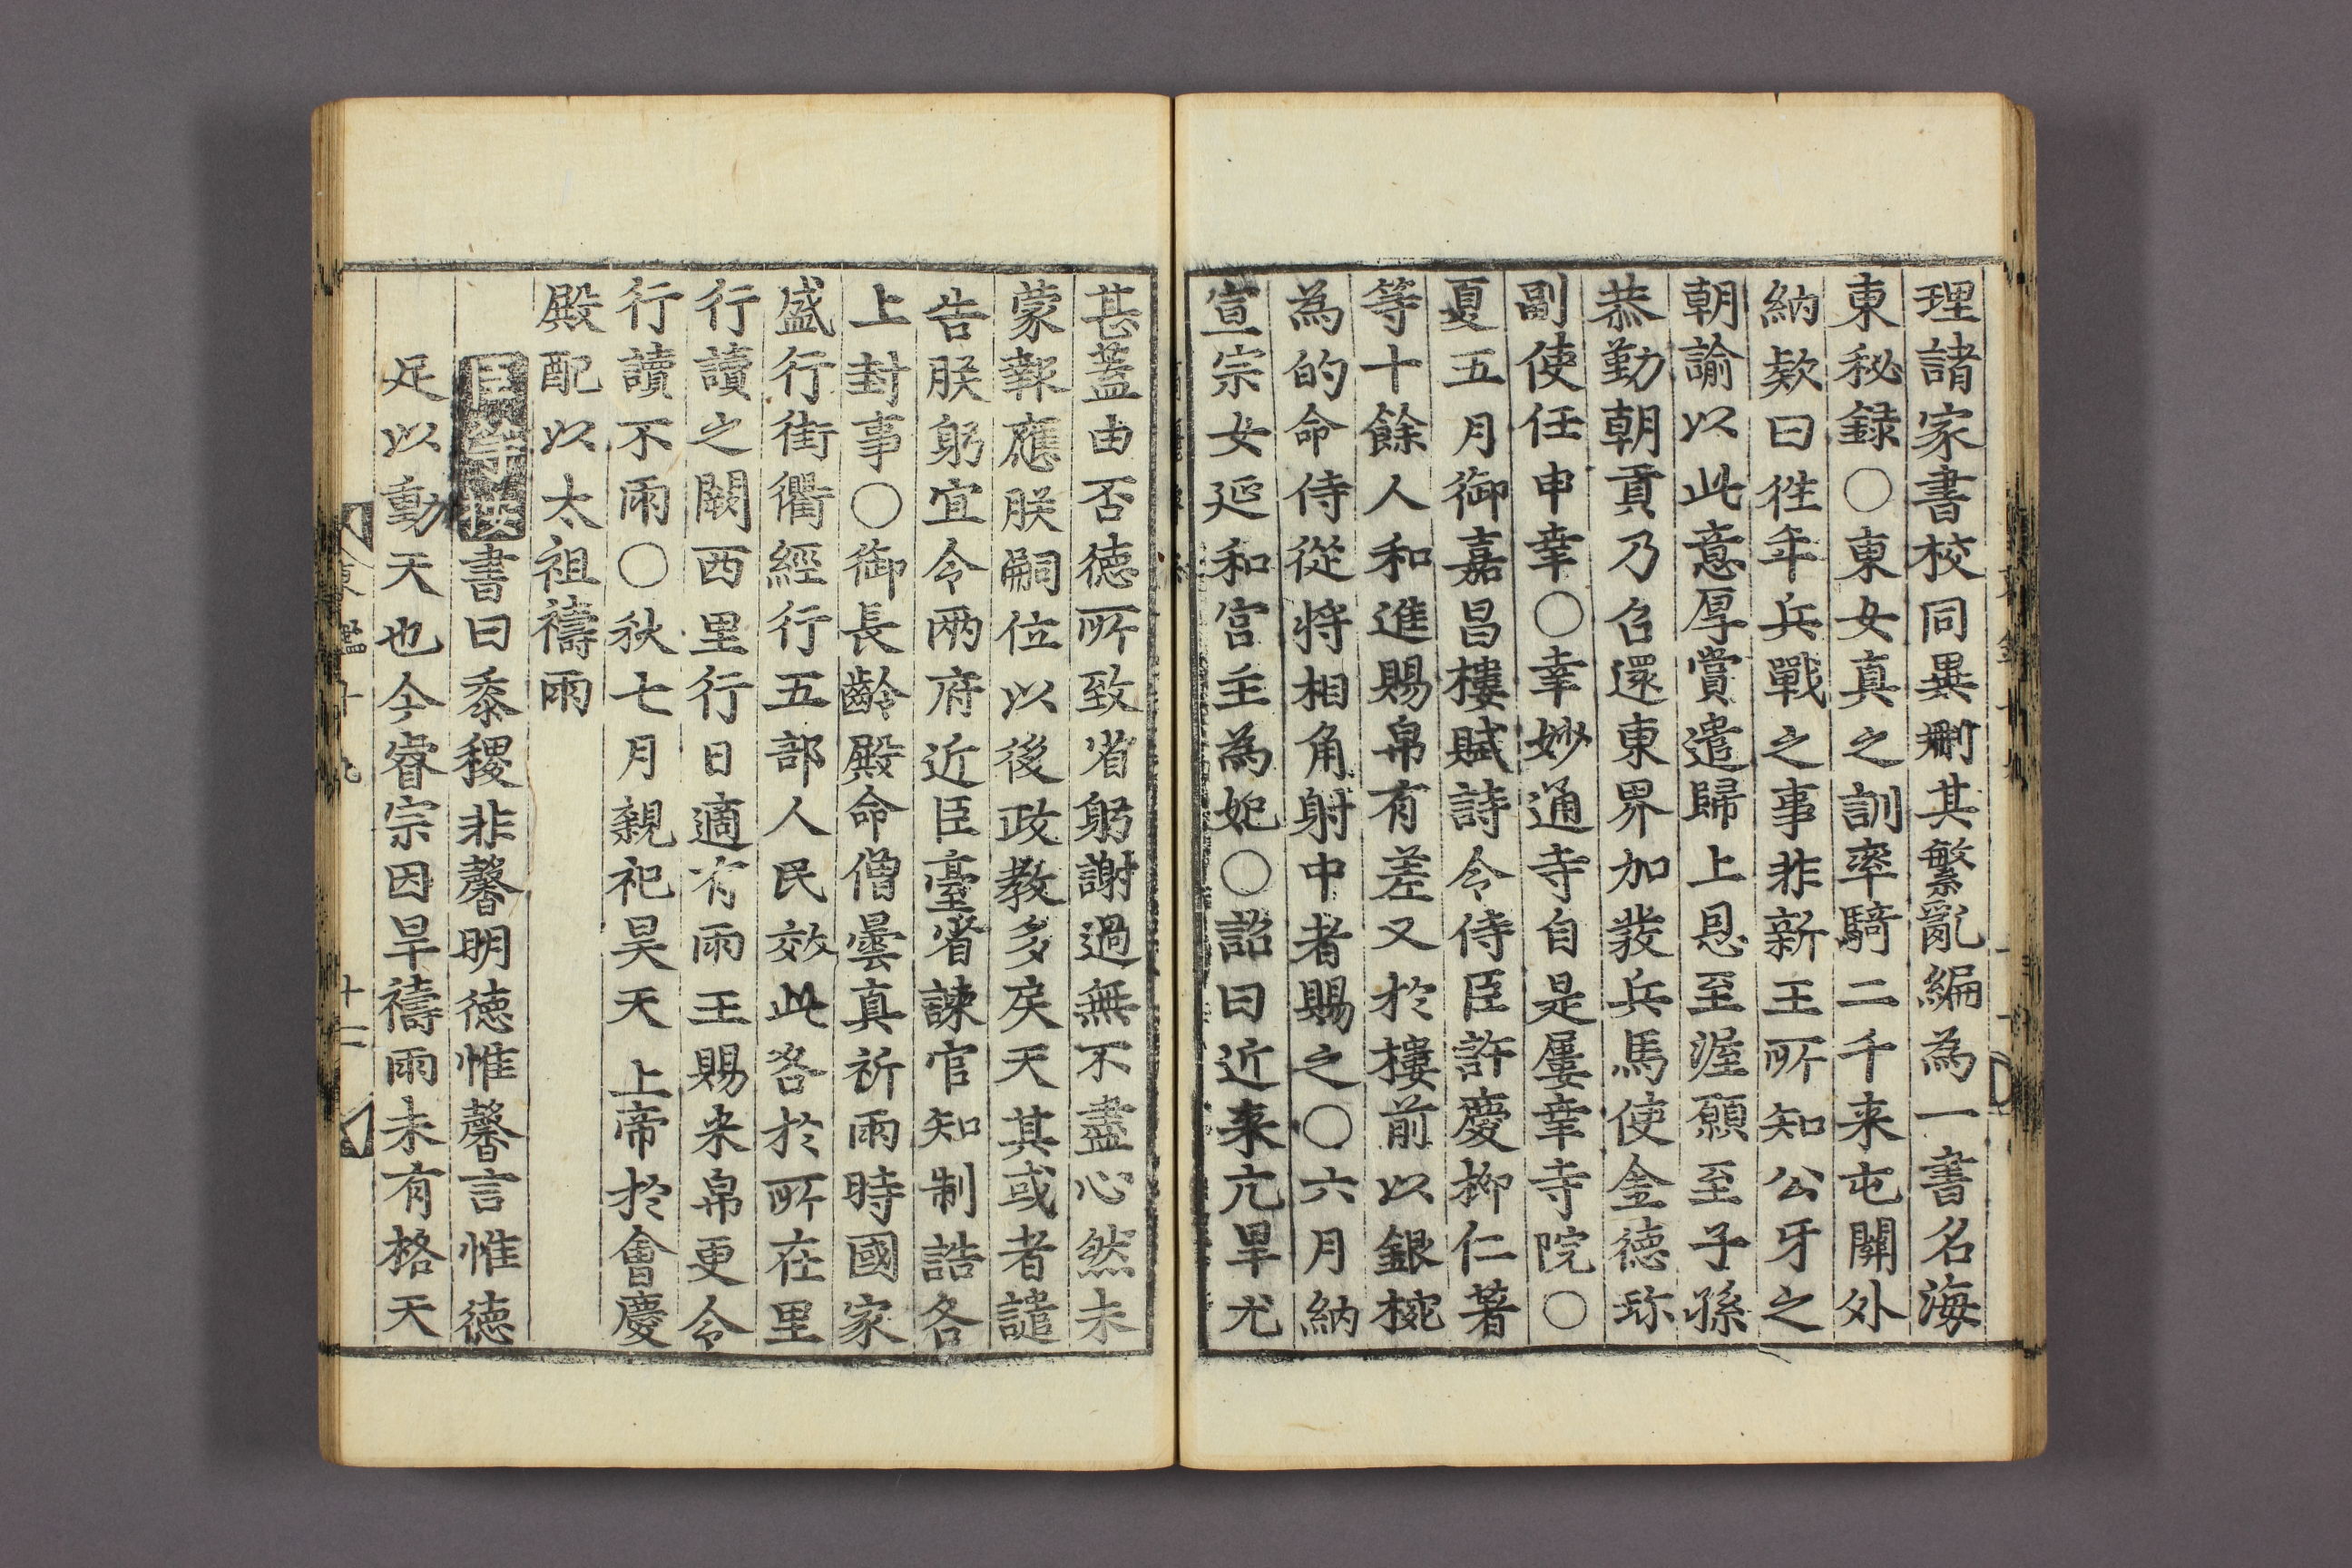 理諸家書校同異刪其繁亂編為一書名海
東秘録〇東女真之訓率騎二千来屯關外
納欵曰徃年兵戰之事非新王所知公牙之
朝諭以此意厚賞遣歸上恩至渥願至子孫
恭勤朝貢乃召還東界加發兵馬使金德珎
副使任申幸〇幸妙通寺自是屢幸寺院〇
夏五月御嘉昌樓賦詩令侍臣許慶柳仁著
等十餘人和進賜帛有差又於樓前以銀椀
為的命侍從將相角射中者賜之〇六月納
宣宗女延和宮主為妃〇詔曰近来亢旱尤
甚蓋由否德所致省躬謝過無不盡心然未
蒙報應朕嗣位以後政教多戾天其或者譴
告朕躬宜令兩府近臣臺省諫官知制誥各
上封事〇御長齡殿命僧曇真祈雨時國家
盛行街衢經行五部人民效此各於所在里
行讀之闕西里行日適有雨王賜米帛更令
行讀不雨〇秋七月親祀昊天上帝於會慶
殿配以太祖禱雨
臣等按書曰黍稷非馨明德惟馨言惟德
足以動天也今睿宗因旱禱雨未有格天
東鑑十九
十二